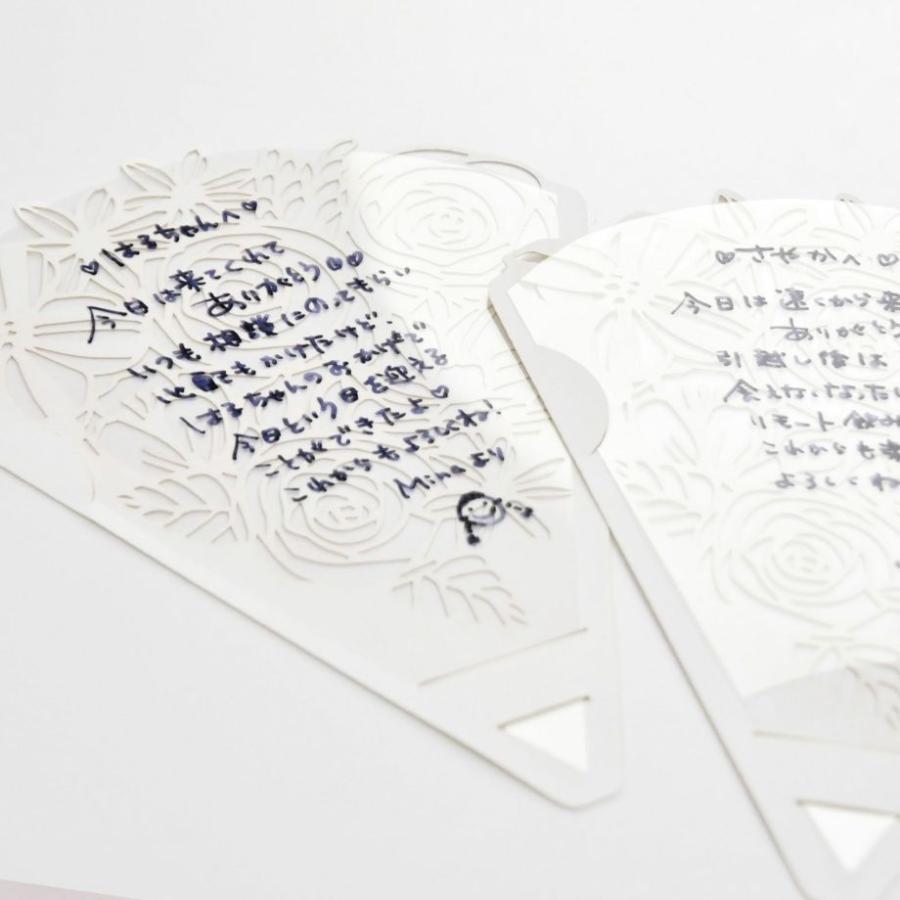 ♡はるちゃんへ♡
今日は来てくれて
ありがとう♡♡
いつも相談にのってもらい
心配もかけたけど、
はるちゃんのおかげで
今日という日を迎える
ことができたよ♡
これからもよろしくね!
Minaより
♡さやかへ♡
今日は遠くから来
ありがとう
引越し後は
会えなくなったけ
リモート飲み
これからも
よろしくね